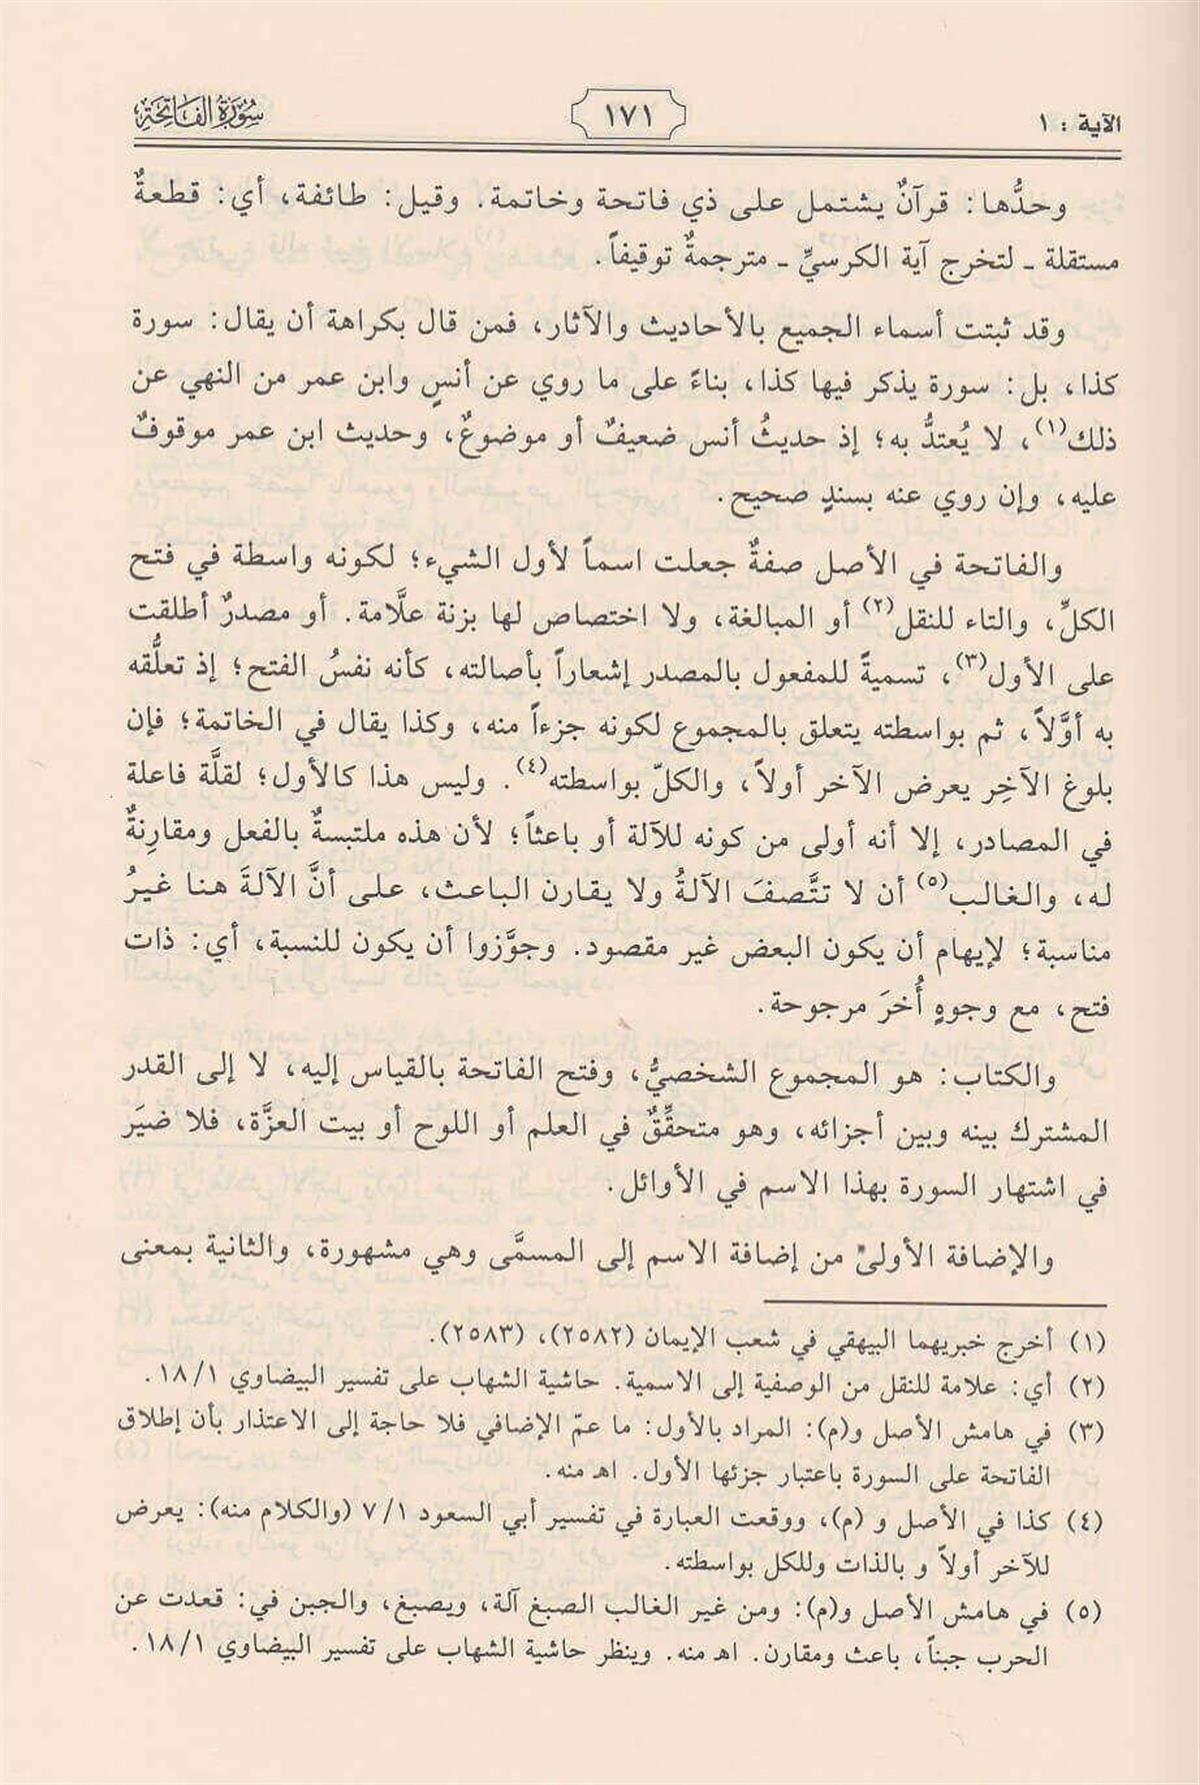 الآية : ١
١٧١
سورة الفاتحة
وحدُّها: قرآنٌ يشتمل على ذي فاتحة وخاتمة. وقيل: طائفة، أي: قطعةٌ
مستقلة ـ لتخرج آية الكرسيِّ ـ مترجمةٌ توقيفاً.
وقد ثبتت أسماء الجميع بالأحاديث والآثار، فمن قال بكراهة أن يقال: سورة
كذا، بل: سورة يذكر فيها كذا، بناءً على ما روي عن أنسٍ وابن عمر من النهي عن
ذلك(١)، لا يُعتدُّ به؛ إذ حديثُ أنس ضعيفٌ أو موضوعٌ، وحديث ابن عمر موقوفٌ
عليه، وإن روي عنه بسندٍ صحيح.
والفاتحة في الأصل صفةٌ جعلت اسماً لأول الشيء؛ لكونه واسطة في فتح
الكلِّ، والتاء للنقل(٢) أو المبالغة، ولا اختصاص لها بزنة علَّامة. أو مصدرٌ أطلقت
على الأول(٣)، تسميةً للمفعول بالمصدر إشعاراً بأصالته، كأنه نفسُ الفتح؛ إذ تعلُّقه
به أوَّلاً، ثم بواسطته يتعلق بالمجموع لكونه جزءاً منه، وكذا يقال في الخاتمة؛ فإن
بلوغ الآخِر يعرض الآخر أولاً، والكلّ بواسطته(٤). وليس هذا كالأول؛ لقلَّة فاعلة
في المصادر، إلا أنه أولى من كونه للآلة أو باعثاً؛ لأن هذه ملتبسةٌ بالفعل ومقارِنةٌ
له، والغالب(٥) أن لا تتَّصفَ الآلةُ ولا يقارن الباعث، على أنَّ الآلةَ هنا غيرُ
مناسبة؛ لإيهام أن يكون البعض غير مقصود. وجوَّزوا أن يكون للنسبة، أي: ذات
فتح، مع وجوهٍ أُخرَ مرجوحة.
والكتاب: هو المجموع الشخصيُّ، وفتح الفاتحة بالقياس إليه، لا إلى القدر
المشترك بينه وبين أجزائه، وهو متحقِّقٌ في العلم أو اللوح أو بيت العزَّة، فلا ضيَر
في اشتهار السورة بهذا الاسم في الأوائل.
والإضافة الأولىٰ من إضافة الاسم إلى المسمَّى وهي مشهورة، والثانية بمعنى
(١) أخرج خبريهما البيهقي في شعب الإيمان (٢٥٨٢)، (٢٥٨٣).
(٢) أي: علامة للنقل من الوصفية إلى الاسمية. حاشية الشهاب على تفسير البيضاوي ١٨/١.
(٣) في هامش الأصل و(م): المراد بالأول: ما عمّ الإضافي فلا حاجة إلى الاعتذار بأن إطلاق
الفاتحة على السورة باعتبار جزئها الأول. اهـ منه.
(٤) كذا في الأصل و (م)، ووقعت العبارة في تفسير أبي السعود ٧/١ (والكلام منه): يعرض
للآخر أولاً و بالذات وللكل بواسطته.
(٥) في هامش الأصل و(م): ومن غير الغالب الصبغ آلة، ويصبغ، والجبن في: قعدت عن
الحرب جبناً، باعث ومقارن. اهـ منه. وينظر حاشية الشهاب على تفسير البيضاوي ١٨/١.